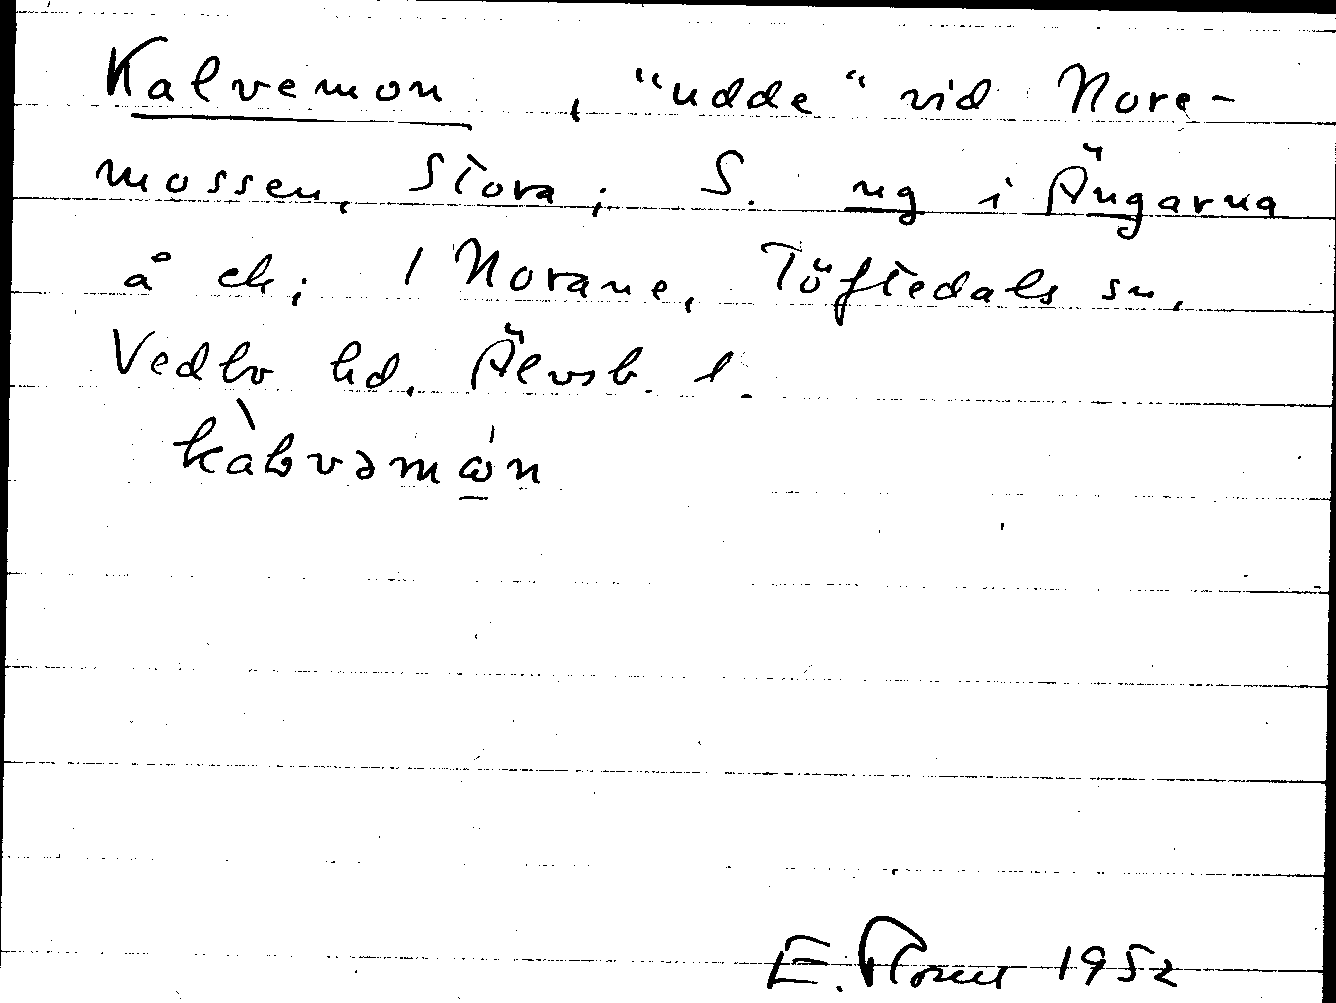 Kalvemon, "udde" vid Nore-
mossen, Stora; S. ng i Ängarna
å ek; 1 Norane, Töftedals sn,
Vedbo hd, Älvsb. l.
E. 1952